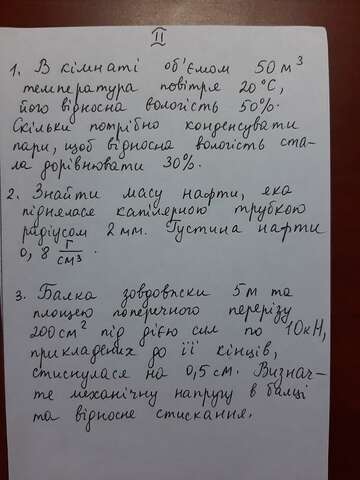 II
1. В кімнаті об'ємом 50 м³
температура повітря 20°С,
його відносна вологість 50%.
Скільки потрібно конденсувати
пари, щоб відносна вологість ста-
ла дорівнювати 30%.
2. Знайти масу нафти, яка
піднялася капілярною трубкою
радіусом 2 мм. Густина нафти
0,8 г/см³.
3. Балка зовдовжки 5 м та
площею поперечного перерізу
200 см² під дією сил по 10 кН,
прикладених до її кінців,
стиснулася на 0,5 см. Визнач-
те механічну напругу в балці
та відносне стискання.